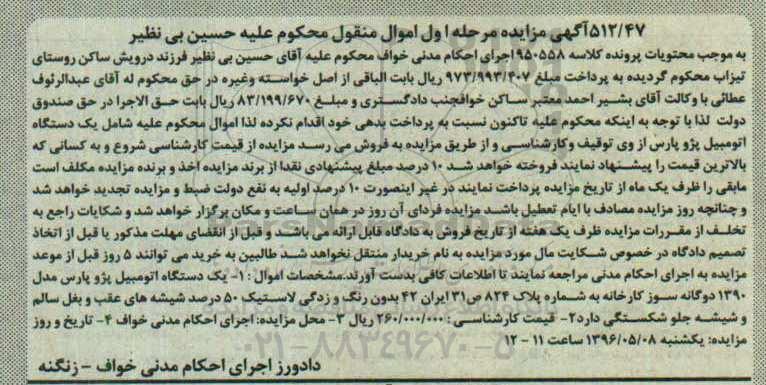 ۵۱۲/۴۷آگهی مزایده مرحله اول اموال منقول محکوم علیه حسین بی نظیر
به موجب محتویات پرونده کلاسه ۹۵۰۵۵۸ اجرای احکام مدنی خواف محکوم علیه آقای حسین بی نظیر فرزند درویش ساکن روستای
تیزاب محکوم گردیده به پرداخت مبلغ ۹۷۳/۹۹۳/۴۰۷ ریال بابت الباقی از اصل خواسته وغیره در حق محکوم له آقای عبدالرئوف
عطائی با وکالت آقای بشیر احمد معتبر ساکن خوافجنب دادگستری و مبلغ ۸۳/۱۹۹/۶۷۰ ریال بابت حق الاجرا در حق صندوق
دولت لذا با توجه به اینکه محکوم علیه تاکنون نسبت به پرداخت بدهی خود اقدام نکرده لذا اموال محکوم علیه شامل یک دستگاه
اتومبیل پژو پارس از وی توقیف وکارشناسی و از طریق مزایده به فروش می رسد مزایده از قیمت کارشناسی شروع و به کسانی که
بالاترین قیمت را پیشنهاد نمایند فروخته خواهد شد ۱۰ درصد مبلغ پیشنهادی نقدا از برند مزایده اخذ و برنده مزایده مکلف است
مابقی را ظرف یک ماه از تاریخ مزایده پرداخت نمایند در غیر اینصورت ۱۰ درصد اولیه به نفع دولت ضبط و مزایده تجدید خواهد شد
و چنانچه روز مزایده مصادف با ایام تعطیل باشد مزایده فردای آن روز در همان ساعت و مکان برگزار خواهد شد و شکایات راجع به
تخلف از مقررات مزایده ظرف یک هفته از تاریخ فروش به دادگاه قابل ارائه می باشد و قبل از انقضای مهلت مذکور یا قبل از اتخاذ
تصمیم دادگاه در خصوص شکایت مال مورد مزایده به نام خریدار منتقل نخواهد شد طالبین به خرید می توانند ۵ روز قبل از موعد
مزایده به اجرای احکام مدنی مراجعه نمایند تا اطلاعات کافی بدست آورند.مشخصات اموال : ۱- یک دستگاه اتومبیل پژو پارس مدل
۱۳۹۰ دوگانه سوز کارخانه به شماره پلاک ۸۲۴ ص۳۱ ایران ۴۲ بدون رنگ و زدگی لاستیک ۵۰ درصد شیشه های عقب و بغل سالم
و شیشه جلو شکستگی دارد۲- قیمت کارشناسی : ۲۶۰/۰۰۰/۰۰۰ ریال ۳- محل مزایده: اجرای احکام مدنی خواف ۴- تاریخ و روز
مزایده: یکشنبه ۱۳۹۶/۰۵/۰۸ ساعت ۱۱ - ۱۲
۰۲۱-۸۸۳۴۹۶۷۰-۵
دادورز اجرای احکام مدنی خواف - زنگنه